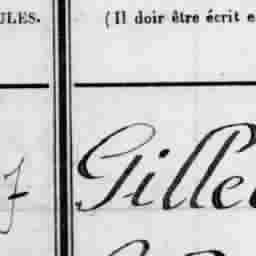 ULES. (Il doir être écrit e
Gille